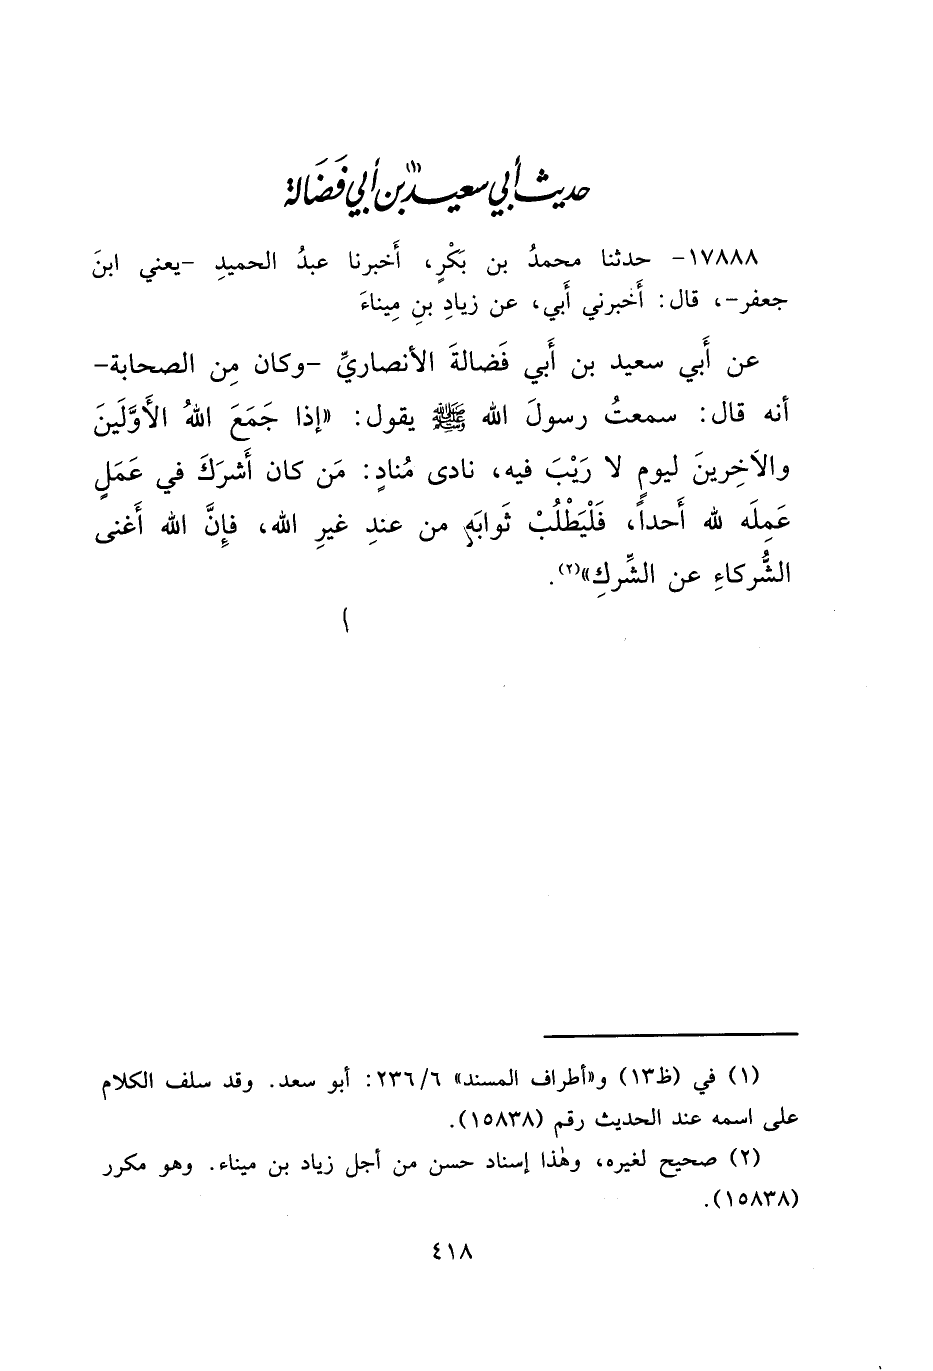 حديث أبي سعيد(١) بن أبي فَضَالة
١٧٨٨٨- حدثنا محمدُ بن بَكْرٍ، أَخبرنا عبدُ الحميدِ -يعني ابنَ
جعفر-، قال: أَخبرني أَبي، عن زيادِ بنِ مِيناءَ
عن أَبي سعيد بن أَبي فَضالةَ الأنصاريِّ -وكان مِن الصحابة-
أنه قال: سمعتُ رسولَ الله ﷺ يقول: «إذا جَمَعَ اللهُ الأَوَّلَينَ
والآخِرينَ ليومٍ لا رَيْبَ فيه، نادى مُنادٍ: مَن كان أَشرَكَ في عَمَلٍ
عَمِلَه لله أَحداً، فَلْيَطْلُبْ ثَوابَه من عندِ غيرِ الله، فإنَّ الله أَغنى
الشُّركاءِ عن الشِّركِ»(٢).
(١) في (ظ١٣) و«أطراف المسند» ٢٣٦/٦: أبو سعد. وقد سلف الكلام
على اسمه عند الحديث رقم (١٥٨٣٨).
(٢) صحيح لغيره، وهٰذا إسناد حسن من أجل زياد بن ميناء. وهو مكرر
(١٥٨٣٨).
٤١٨